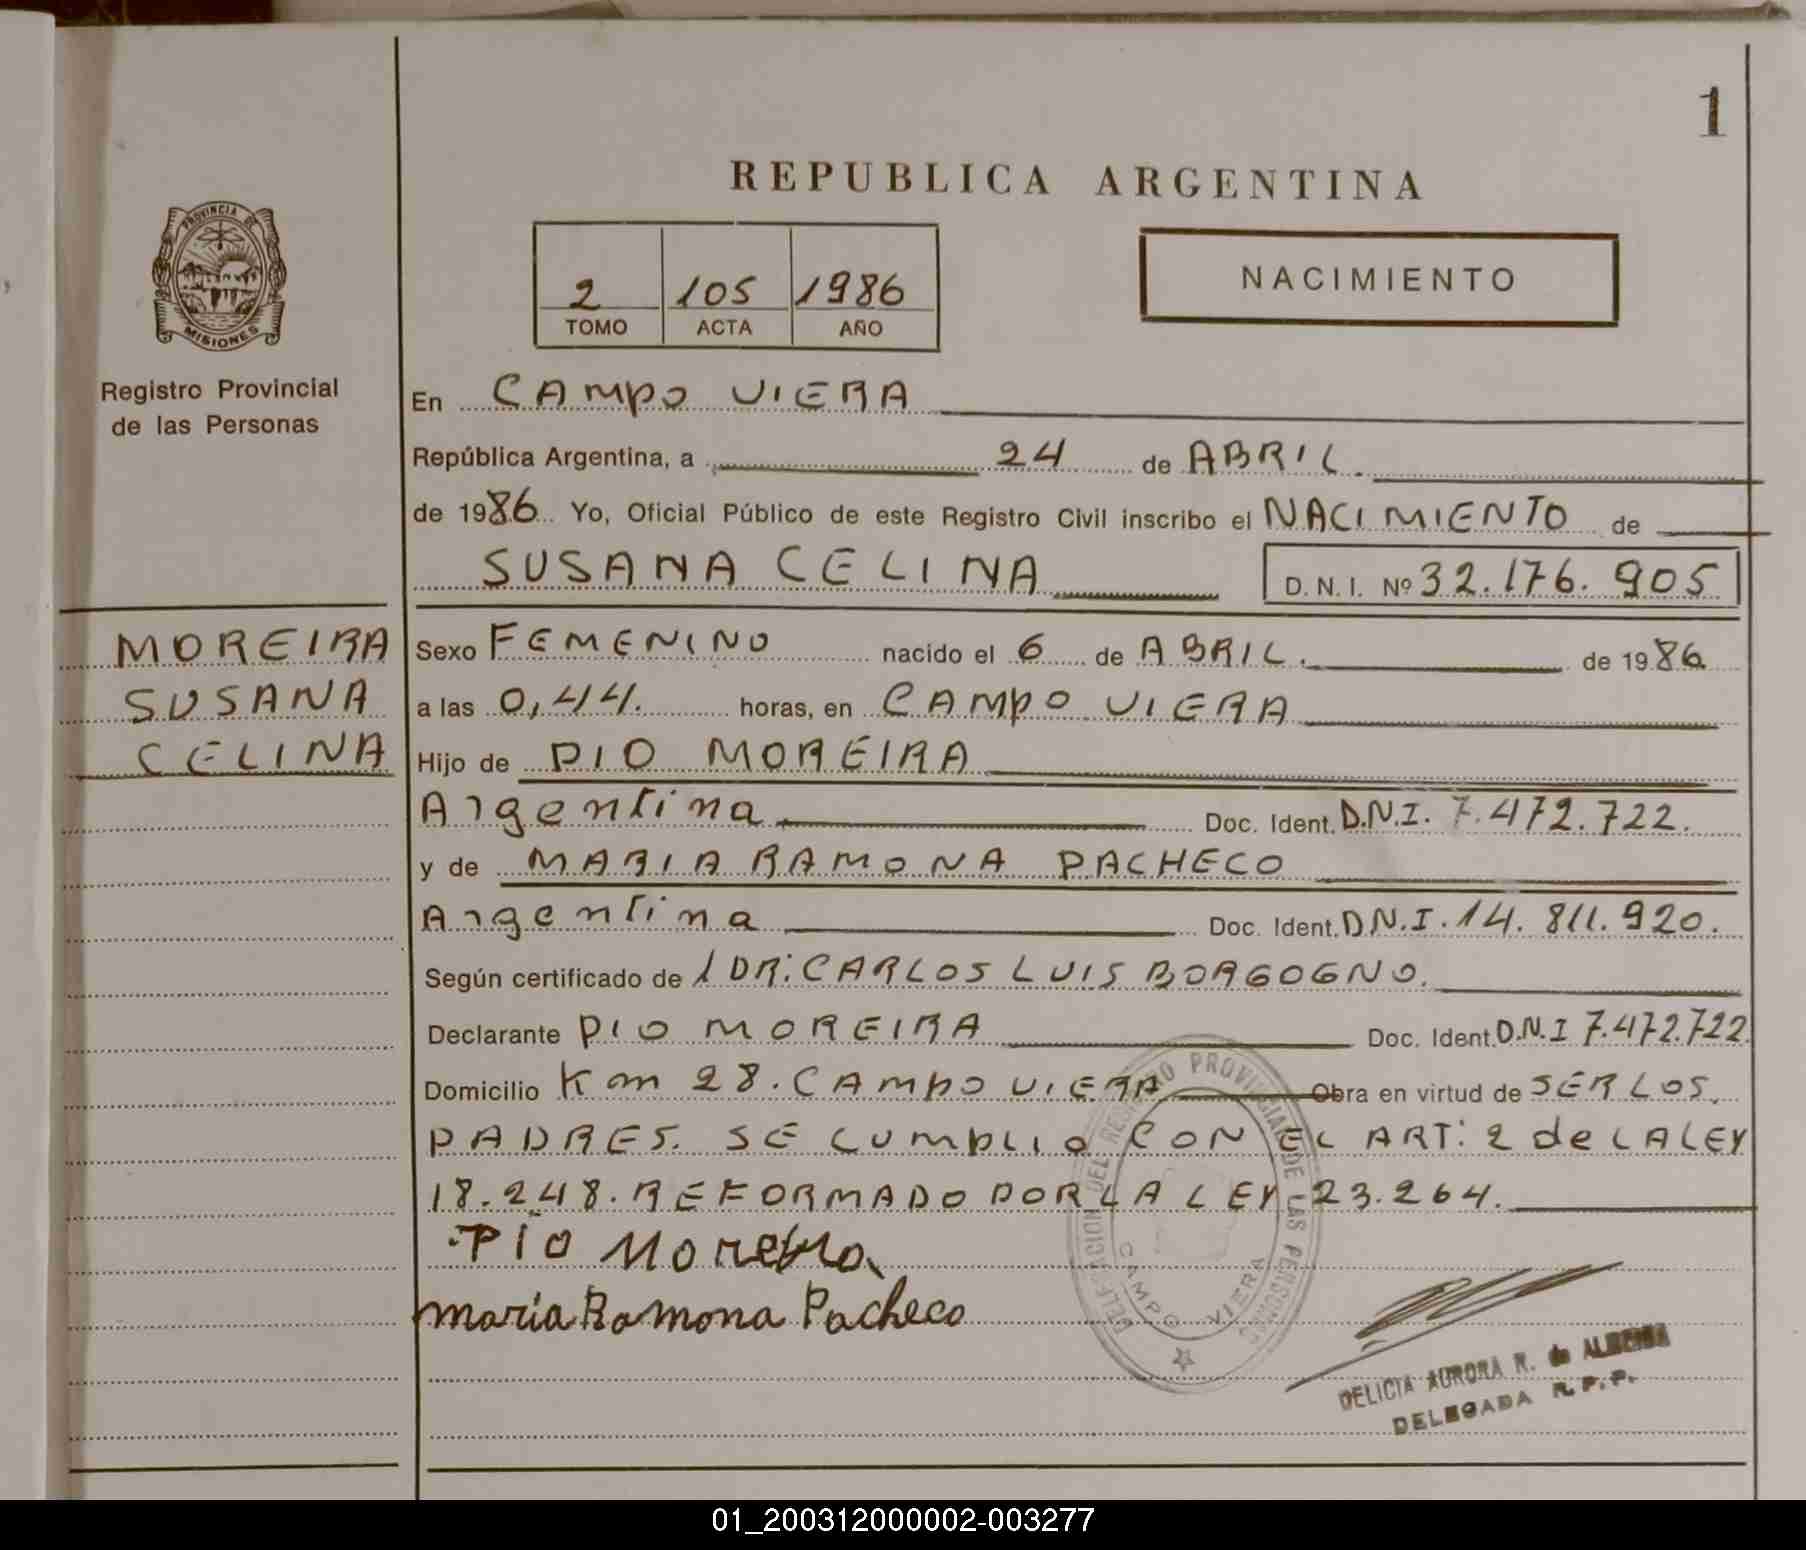 1
REPUBLICA ARGENTINA
PROVINCIA DE
MISIONES
2 105 1986
TOMO ACTA AÑO
NACIMIENTO
Registro Provincial
de las Personas
En CAMPO VIERA
República Argentina, a 24 de ABRIL.
de 1986 Yo, Oficial Público de este Registro Civil inscribo el NACIMIENTO de
SUSANA CELINA D.N.I. Nº 32.176.905
MOREIRA
SUSANA
CELINA
Sexo FEMENINO nacido el 6 de ABRIL. de 1986
a las 0,44. horas, en CAMPO VIERA
Hijo de PIO MOREIRA
Argentina Doc. Ident. D.N.I. 7.472.722.
y de MARIA RAMONA PACHECO
Argentina Doc. Ident. D.N.I. 14.811.920.
Según certificado de 1 DR: CARLOS LUIS BORGOGNO.
Declarante PIO MOREIRA Doc. Ident. D.N.I 7.472.722
Domicilio Km 28. CAMPO VIERA Obra en virtud de SER LOS.
PADRES. SE CUMPLIO CON EL ART: 2 de LA LEY
18.248. REFORMADO POR LA LEY 23.264.
Pio Moreira
maria Ramona Pacheco
DELEGACION DEL REGISTRO PROVINCIAL DE LAS PERSONAS
CAMPO VIERA
DELICIA AURORA R. de ALMEIDA
DELEGADA R.P.P.
01_200312000002-003277